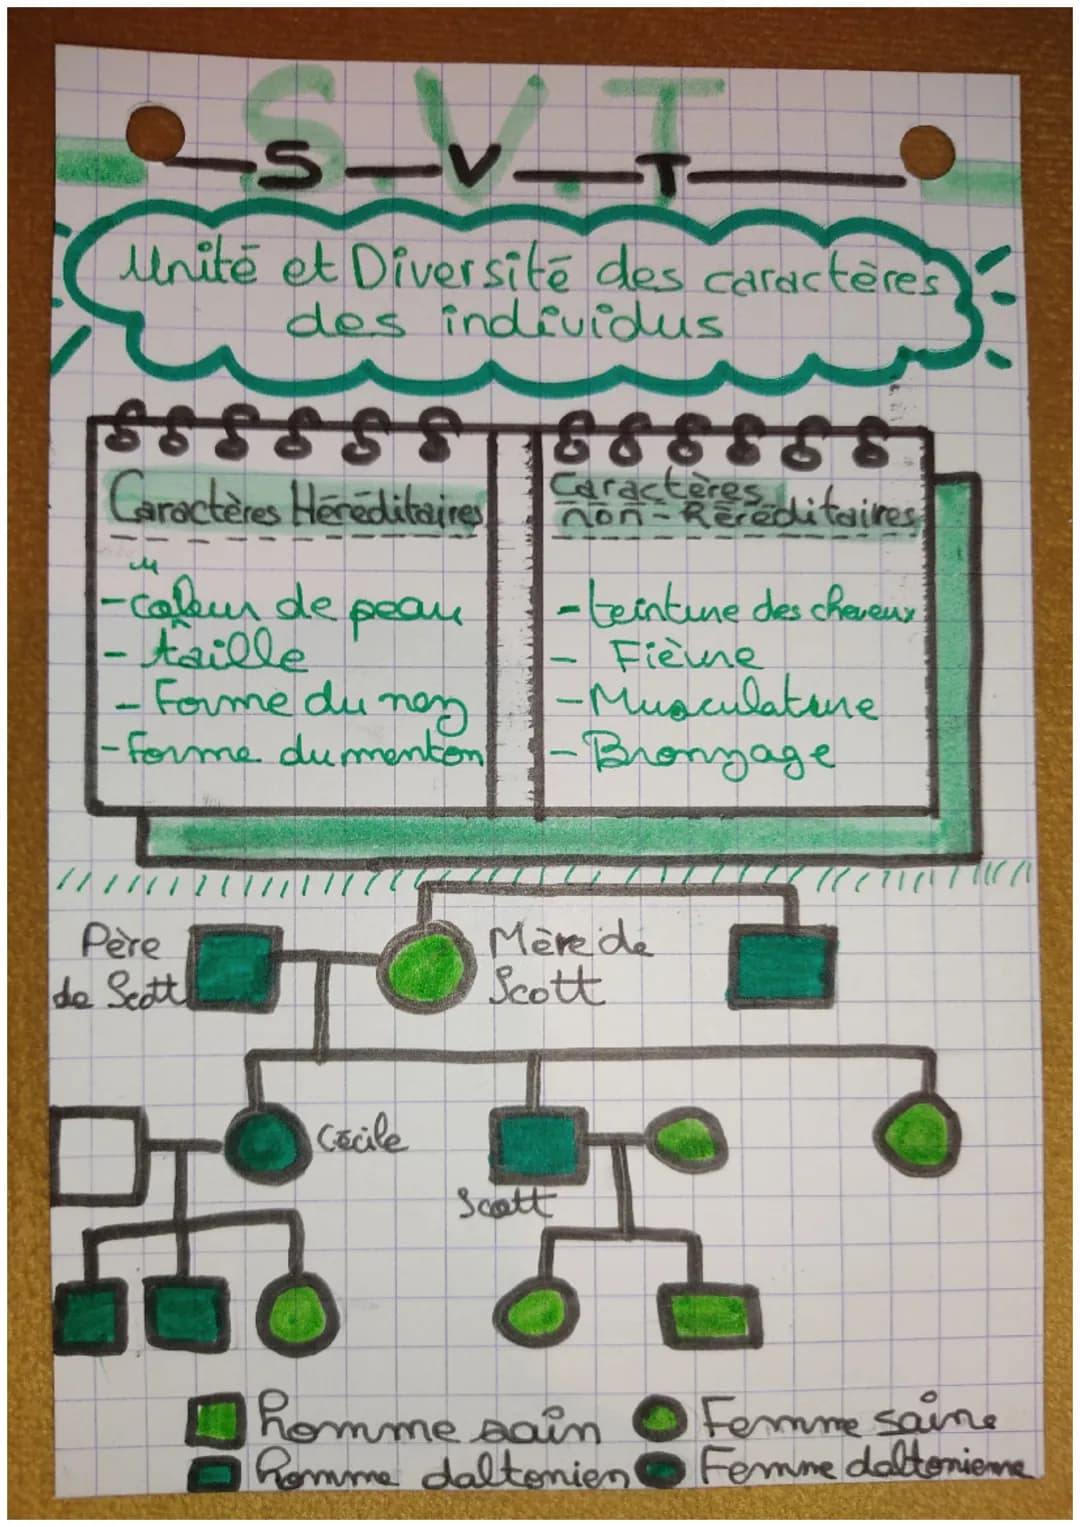 S.V.T
S V T
Unité et Diversité des caractères
des individus
Caractères Héréditaires
- Couleur de peau
- taille
- Forme du nez
- Forme du menton
Caractères
non-héréditaires
- teinture des cheveux
- Fièvre
- Musculature
- Bronzage
Père
de Scott
Mère de
Scott
Cécile
Scott
homme sain
Femme saine
homme daltonien
Femme daltonienne